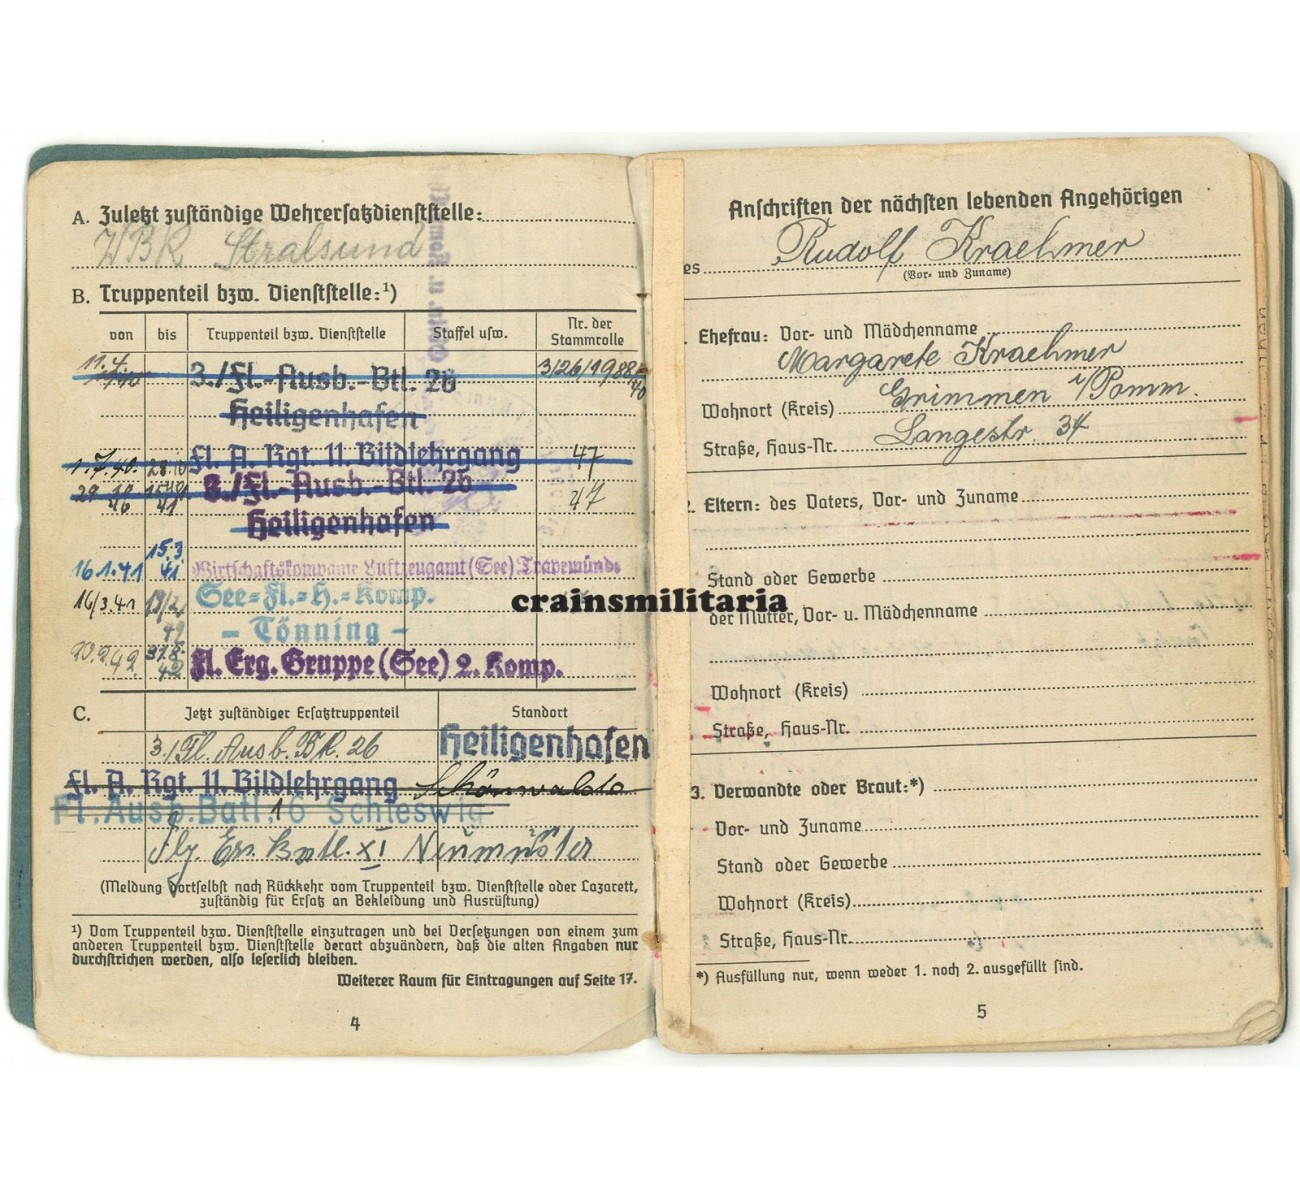 A. Zuletzt zuständige Wehrersatzdienststelle:
WBK Stralsund
B. Truppenteil bzw. Dienststelle:¹)
von bis Truppenteil bzw. Dienststelle Staffel usw. Nr. der Stammrolle
11.4. 3./Fl.-Ausb.-Btl. 26 3/26/1988
40
Heiligenhafen
1.7.40. Fl. A. Rgt. 11. Bildlehrgang 47
3./Fl.-Ausb.-Btl. 26 47
41
Heiligenhafen
15.3.
16.1.41 41 Wirtschaftskompanie Luftzeugamt (See) Travemünde
16/3.41 19/2. See-Fl.-H.-Komp.
42 - Tönning -
20.2.42. 42 Fl. Erg. Gruppe (See) 2. Komp.
C. Jetzt zuständiger Ersatztruppenteil Standort
3./Fl. Ausb. Btl. 26 Heiligenhafen
Fl. A. Rgt. 11. Bildlehrgang Schönwalde
Fl. Ausb. Batl. 16 Schleswig
Flg. Ers. Batl. XI Neumünster
(Meldung dortselbst nach Rückkehr vom Truppenteil bzw. Dienststelle oder Lazarett,
zuständig für Ersatz an Bekleidung und Ausrüstung)
¹) Vom Truppenteil bzw. Dienststelle einzutragen und bei Versetzungen von einem zum
anderen Truppenteil bzw. Dienststelle derart abzuändern, daß die alten Angaben nur
durchstrichen werden, also leserlich bleiben.
Weiterer Raum für Eintragungen auf Seite 17.
4
Anschriften der nächsten lebenden Angehörigen
es Rudolf Kraehmer
(Vor- und Zuname)
Ehefrau: Vor- und Mädchenname
Margarete Kraehmer
Wohnort (Kreis) Grimmen i/Pomm.
Straße, Haus-Nr. Langestr. 34
2. Eltern: des Vaters, Vor- und Zuname
Stand oder Gewerbe
der Mutter, Vor- u. Mädchenname
Wohnort (Kreis)
Straße, Haus-Nr.
3. Verwandte oder Braut:*)
Vor- und Zuname
Stand oder Gewerbe
Wohnort (Kreis)
Straße, Haus-Nr.
*) Ausfüllung nur, wenn weder 1. noch 2. ausgefüllt sind.
5
crainsmilitaria